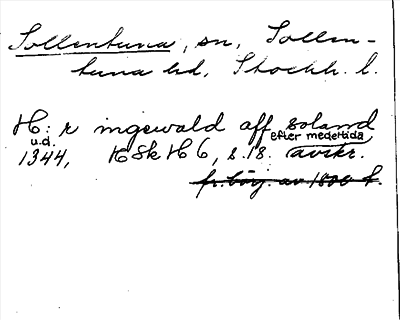 Sollentuna, sn, Sollen-
tuna hd, Stockh. l.
H: r ingewald aff soland
u.d. efter medeltida
1344, KSkH 6, s. 18. avskr.
fr. börj. av 1800 t.